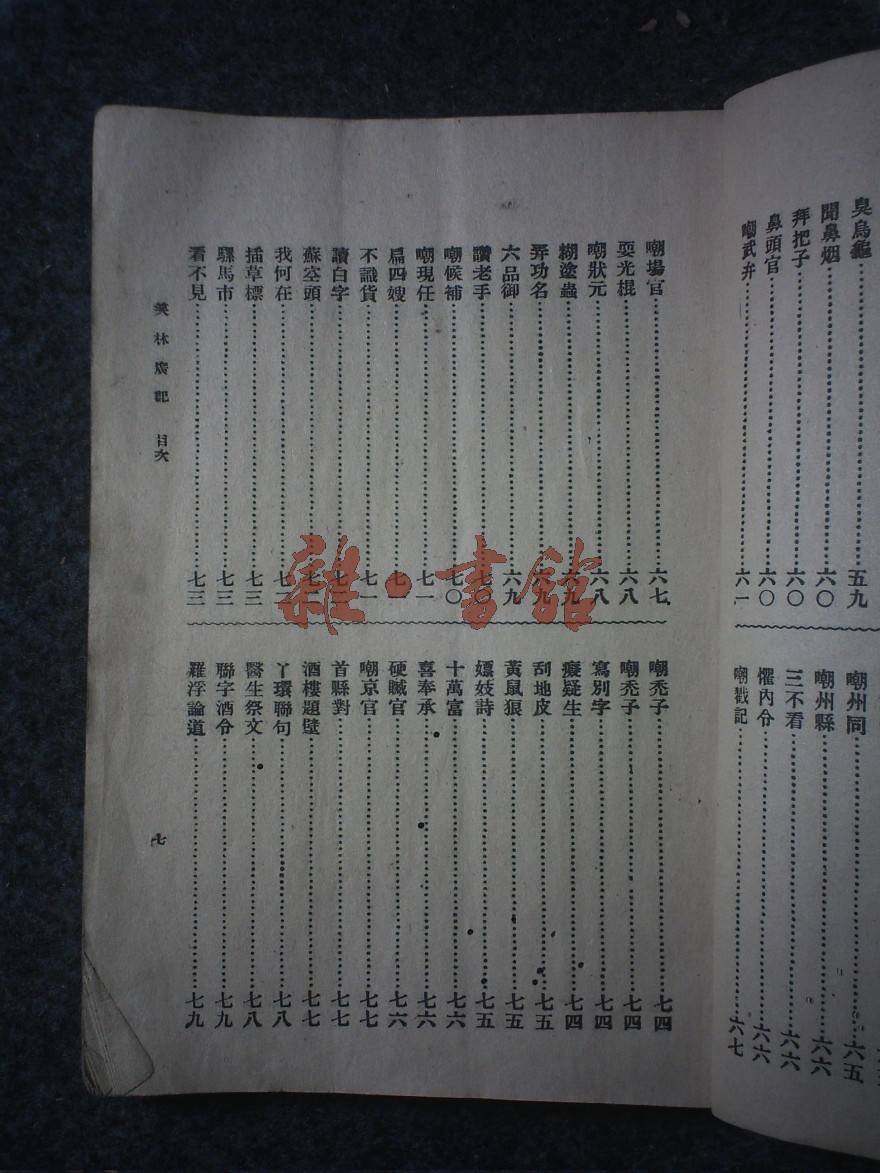 臭烏龜……五九
聞鼻烟……六〇
拜把子……六〇
鼻頭官……六〇
嘲武弁……六一
嘲州同……六五
嘲州縣……六六
三不看……六六
懼內令……六六
嘲戳記……六七
嘲場官……六七
耍光棍……六八
嘲狀元……六八
糊塗蟲……六九
弄功名……六九
六品御……六九
讚老手……七〇
嘲候補……七〇
嘲現任……七一
扁四嫂……七一
不識貨……七一
讀白字……七二
蘇空頭……七二
我何在……七二
插草標……七三
騾馬市……七三
看不見……七三
嘲禿子……七四
嘲禿子……七四
寫別字……七四
癡疑生……七四
刮地皮……七五
黃鼠狼……七五
嫖妓詩……七五
十萬富……七六
喜奉承……七六
硬贓官……七六
嘲京官……七七
首縣對……七七
酒樓題壁……七七
丫環聯句……七八
醫生祭文……七八
聯字酒令……七九
羅浮論道……七九
笑林廣記 目次
七
雜·書館